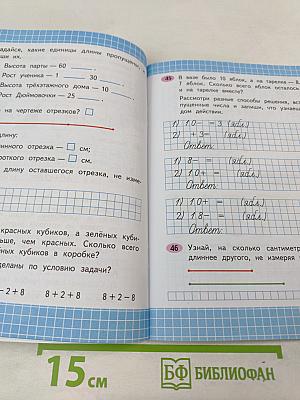 адайся, какие единицы длины пропущены
ши их.
Высота парты — 60
Рост ученика — 1 30
Высота трёхэтажного дома — 10
Рост Дюймовочки — 25
о на чертеже отрезков?
длину:
инного отрезка — см;
роткого отрезка — см.
длину оставшегося отрезка, не изме-
красных кубиков, а зелёных куби-
ьше, чем красных. Сколько всего
ных кубиков в коробке?
деланы по условию задачи?
– 2 + 8 8 + 2 + 8 8 + 2 – 8
45 В вазе было 16 яблок, а на тарелке —
7 яблок. Сколько всего яблок осталось
и на тарелке вместе?
Рассмотри разные способы решения, вст
пущенные числа и запиши, что узнавал
дом.
1) 10 – = 3 (ябл.)
2) + 3 = (ябл.)
Ответ:
1) 8 – = (ябл.)
2) 10 + = (ябл.)
Ответ:
1) 10 + = (ябл.)
2) 18 – = (ябл.)
Ответ:
46 Узнай, на сколько сантиметр
длиннее другого, не измеряя
15 см
БФ БИБЛИОФАН